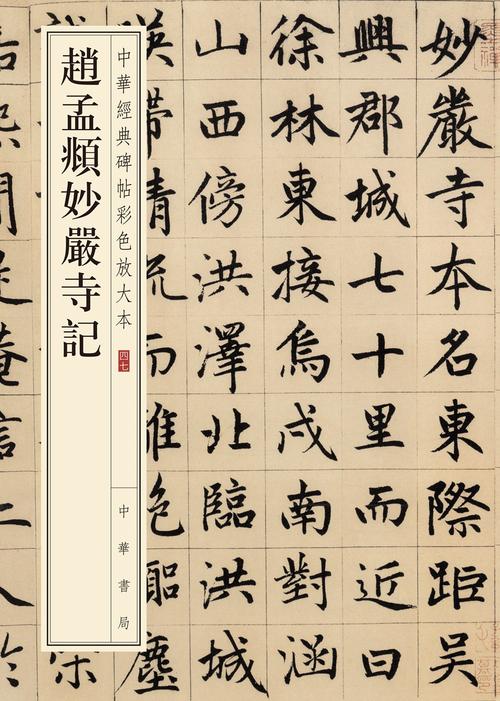 趙孟頫妙嚴寺記
中華經典碑帖彩色放大本
四七
中華書局
妙嚴寺本名東際距吳
興郡城七十里而近曰
徐林東接烏戍南對涵
山西傍洪澤北臨洪城
帶流而塵
菴信二人於